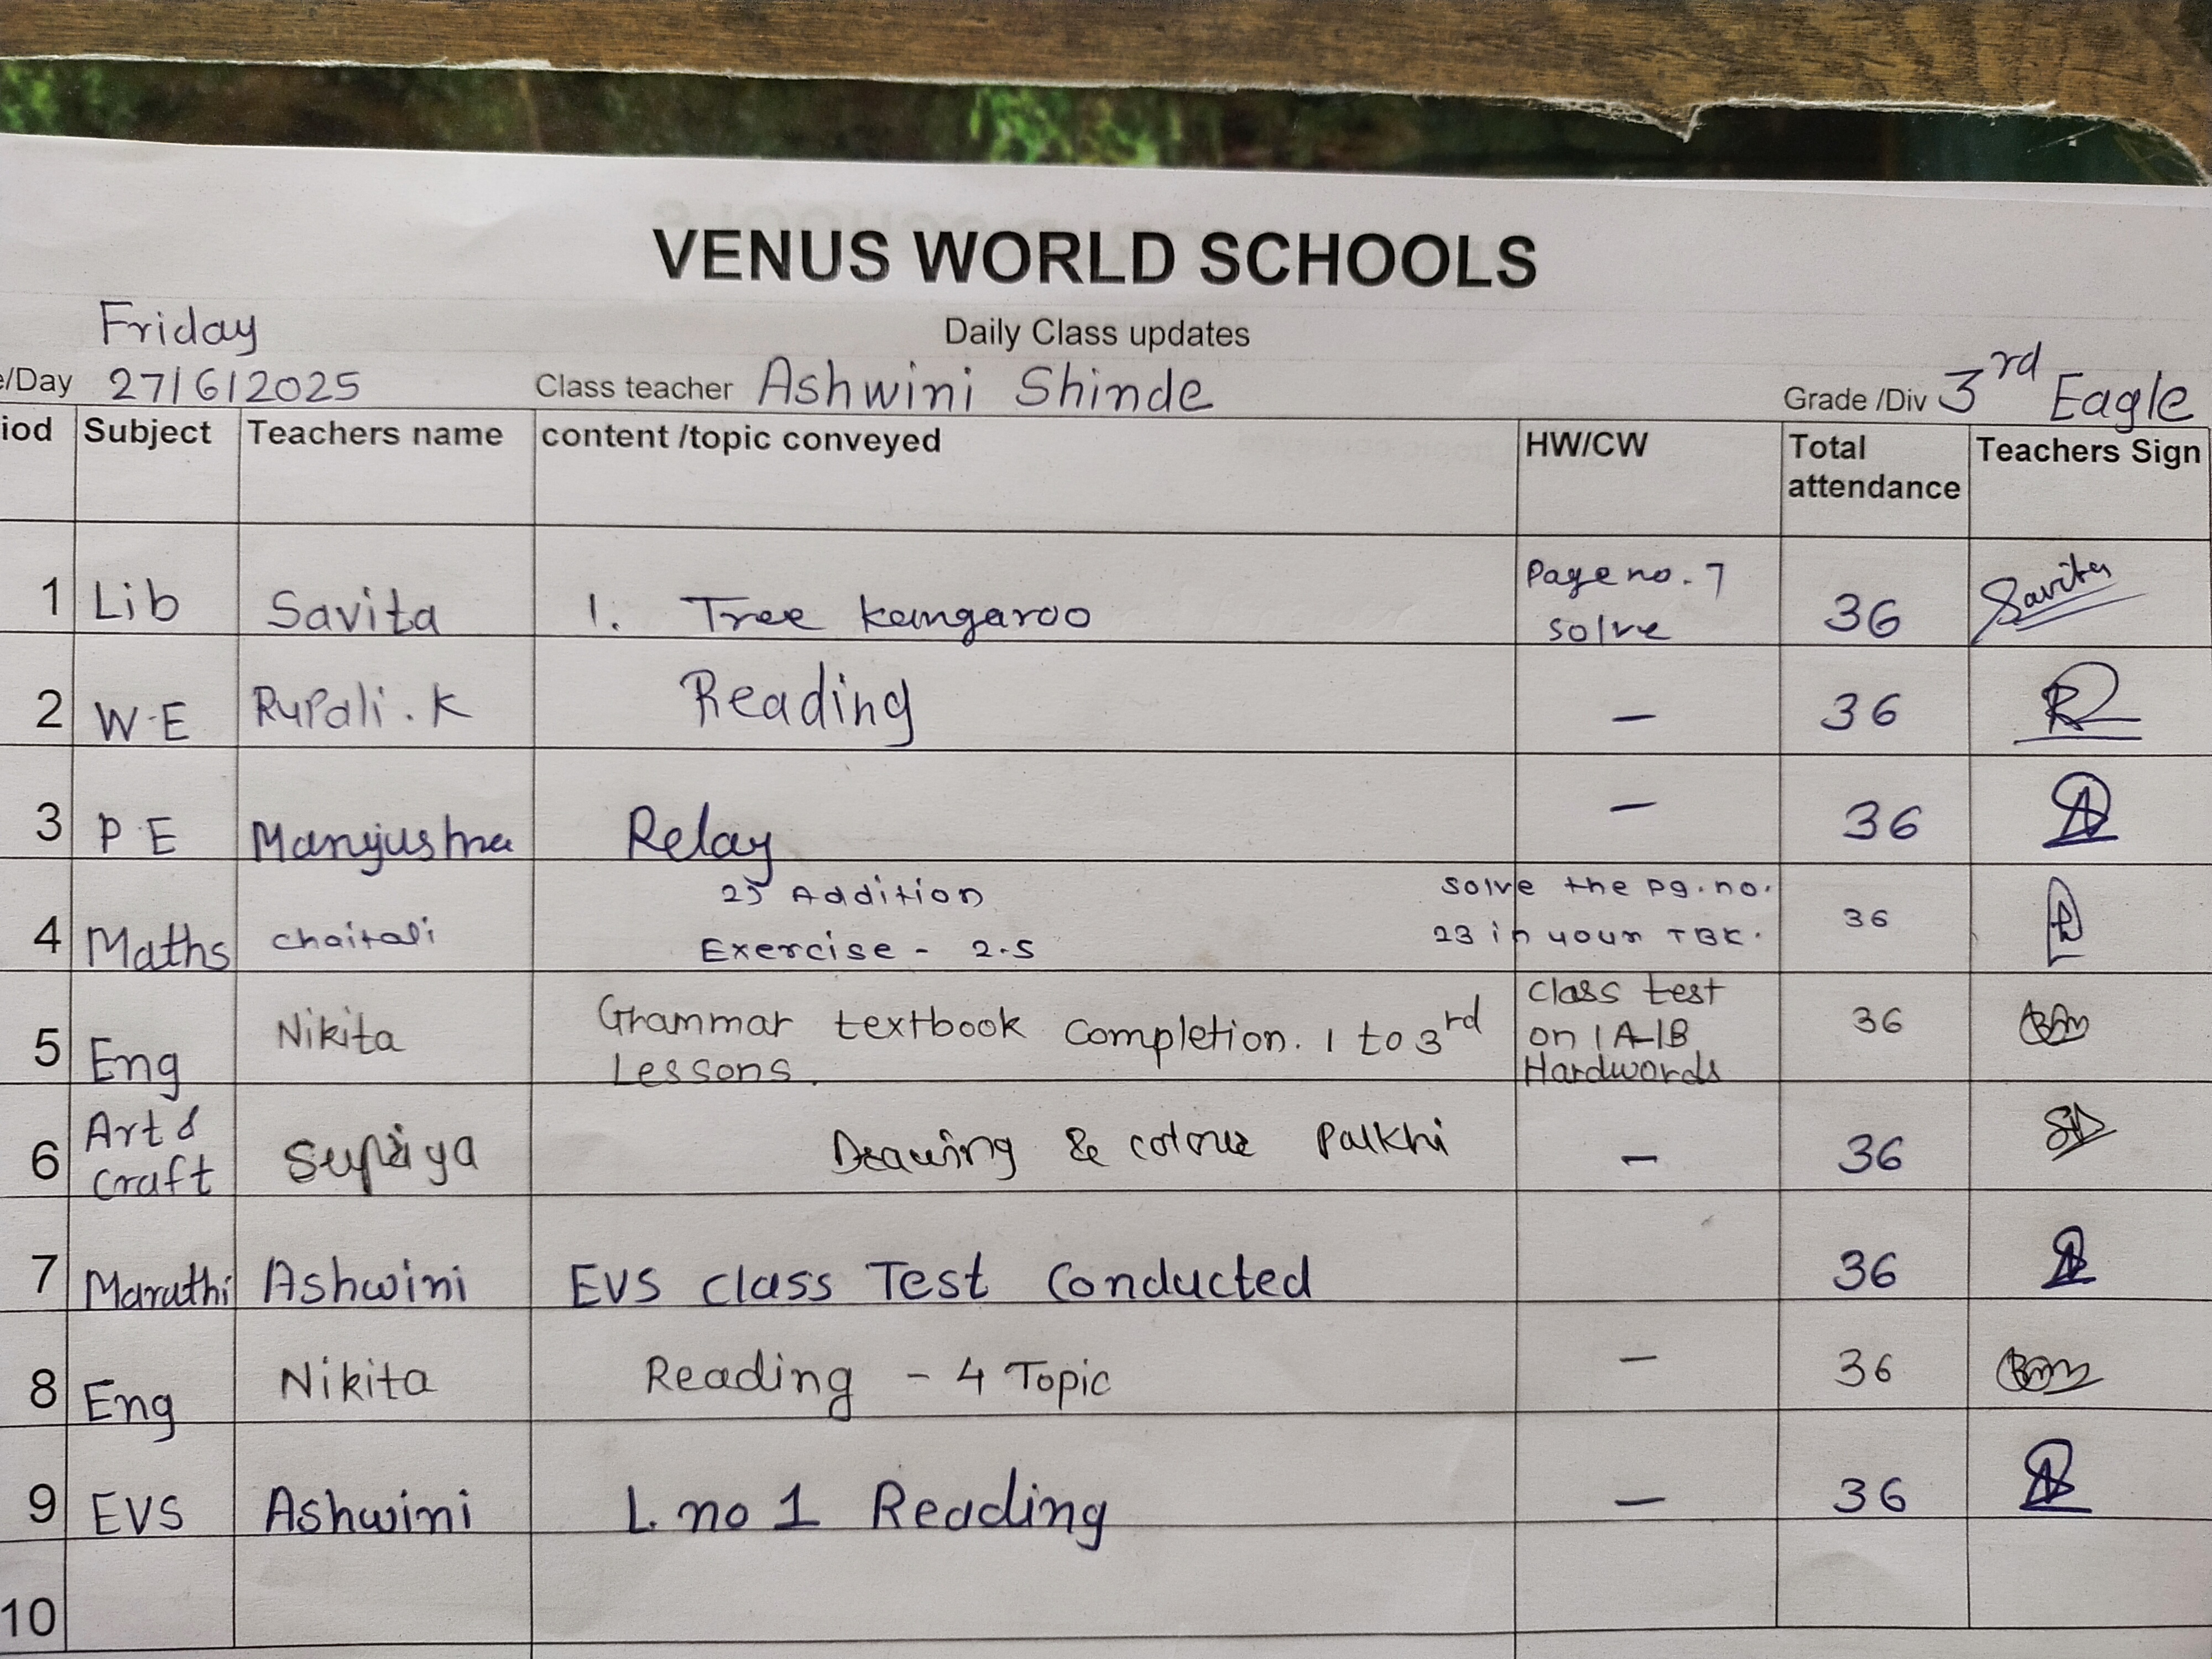 VENUS WORLD SCHOOLS
Daily Class updates
Friday
e/Day 27/6/2025 Class teacher Ashwini Shinde Grade /Div 3rd Eagle
iod Subject Teachers name content /topic conveyed HW/CW Total attendance Teachers Sign
1 Lib Savita 1. Tree kangaroo Page no. 7 solve 36 Savita
2 W.E Rupali . K Reading — 36
3 P.E Manjushree Relay — 36
4 Maths Chaitali 2) Addition Exercise - 2.5 Solve the pg. no. 23 in your TBK. 36
5 Eng Nikita Grammar textbook Completion. 1 to 3rd Lessons. Class test on 1A-1B Hardwords 36
6 Art & Craft Supriya Drawing & colour Palkhi — 36
7 Marathi Ashwini EVS class Test Conducted 36
8 Eng Nikita Reading - 4 Topic — 36
9 EVS Ashwini L. no 1 Reading — 36
10